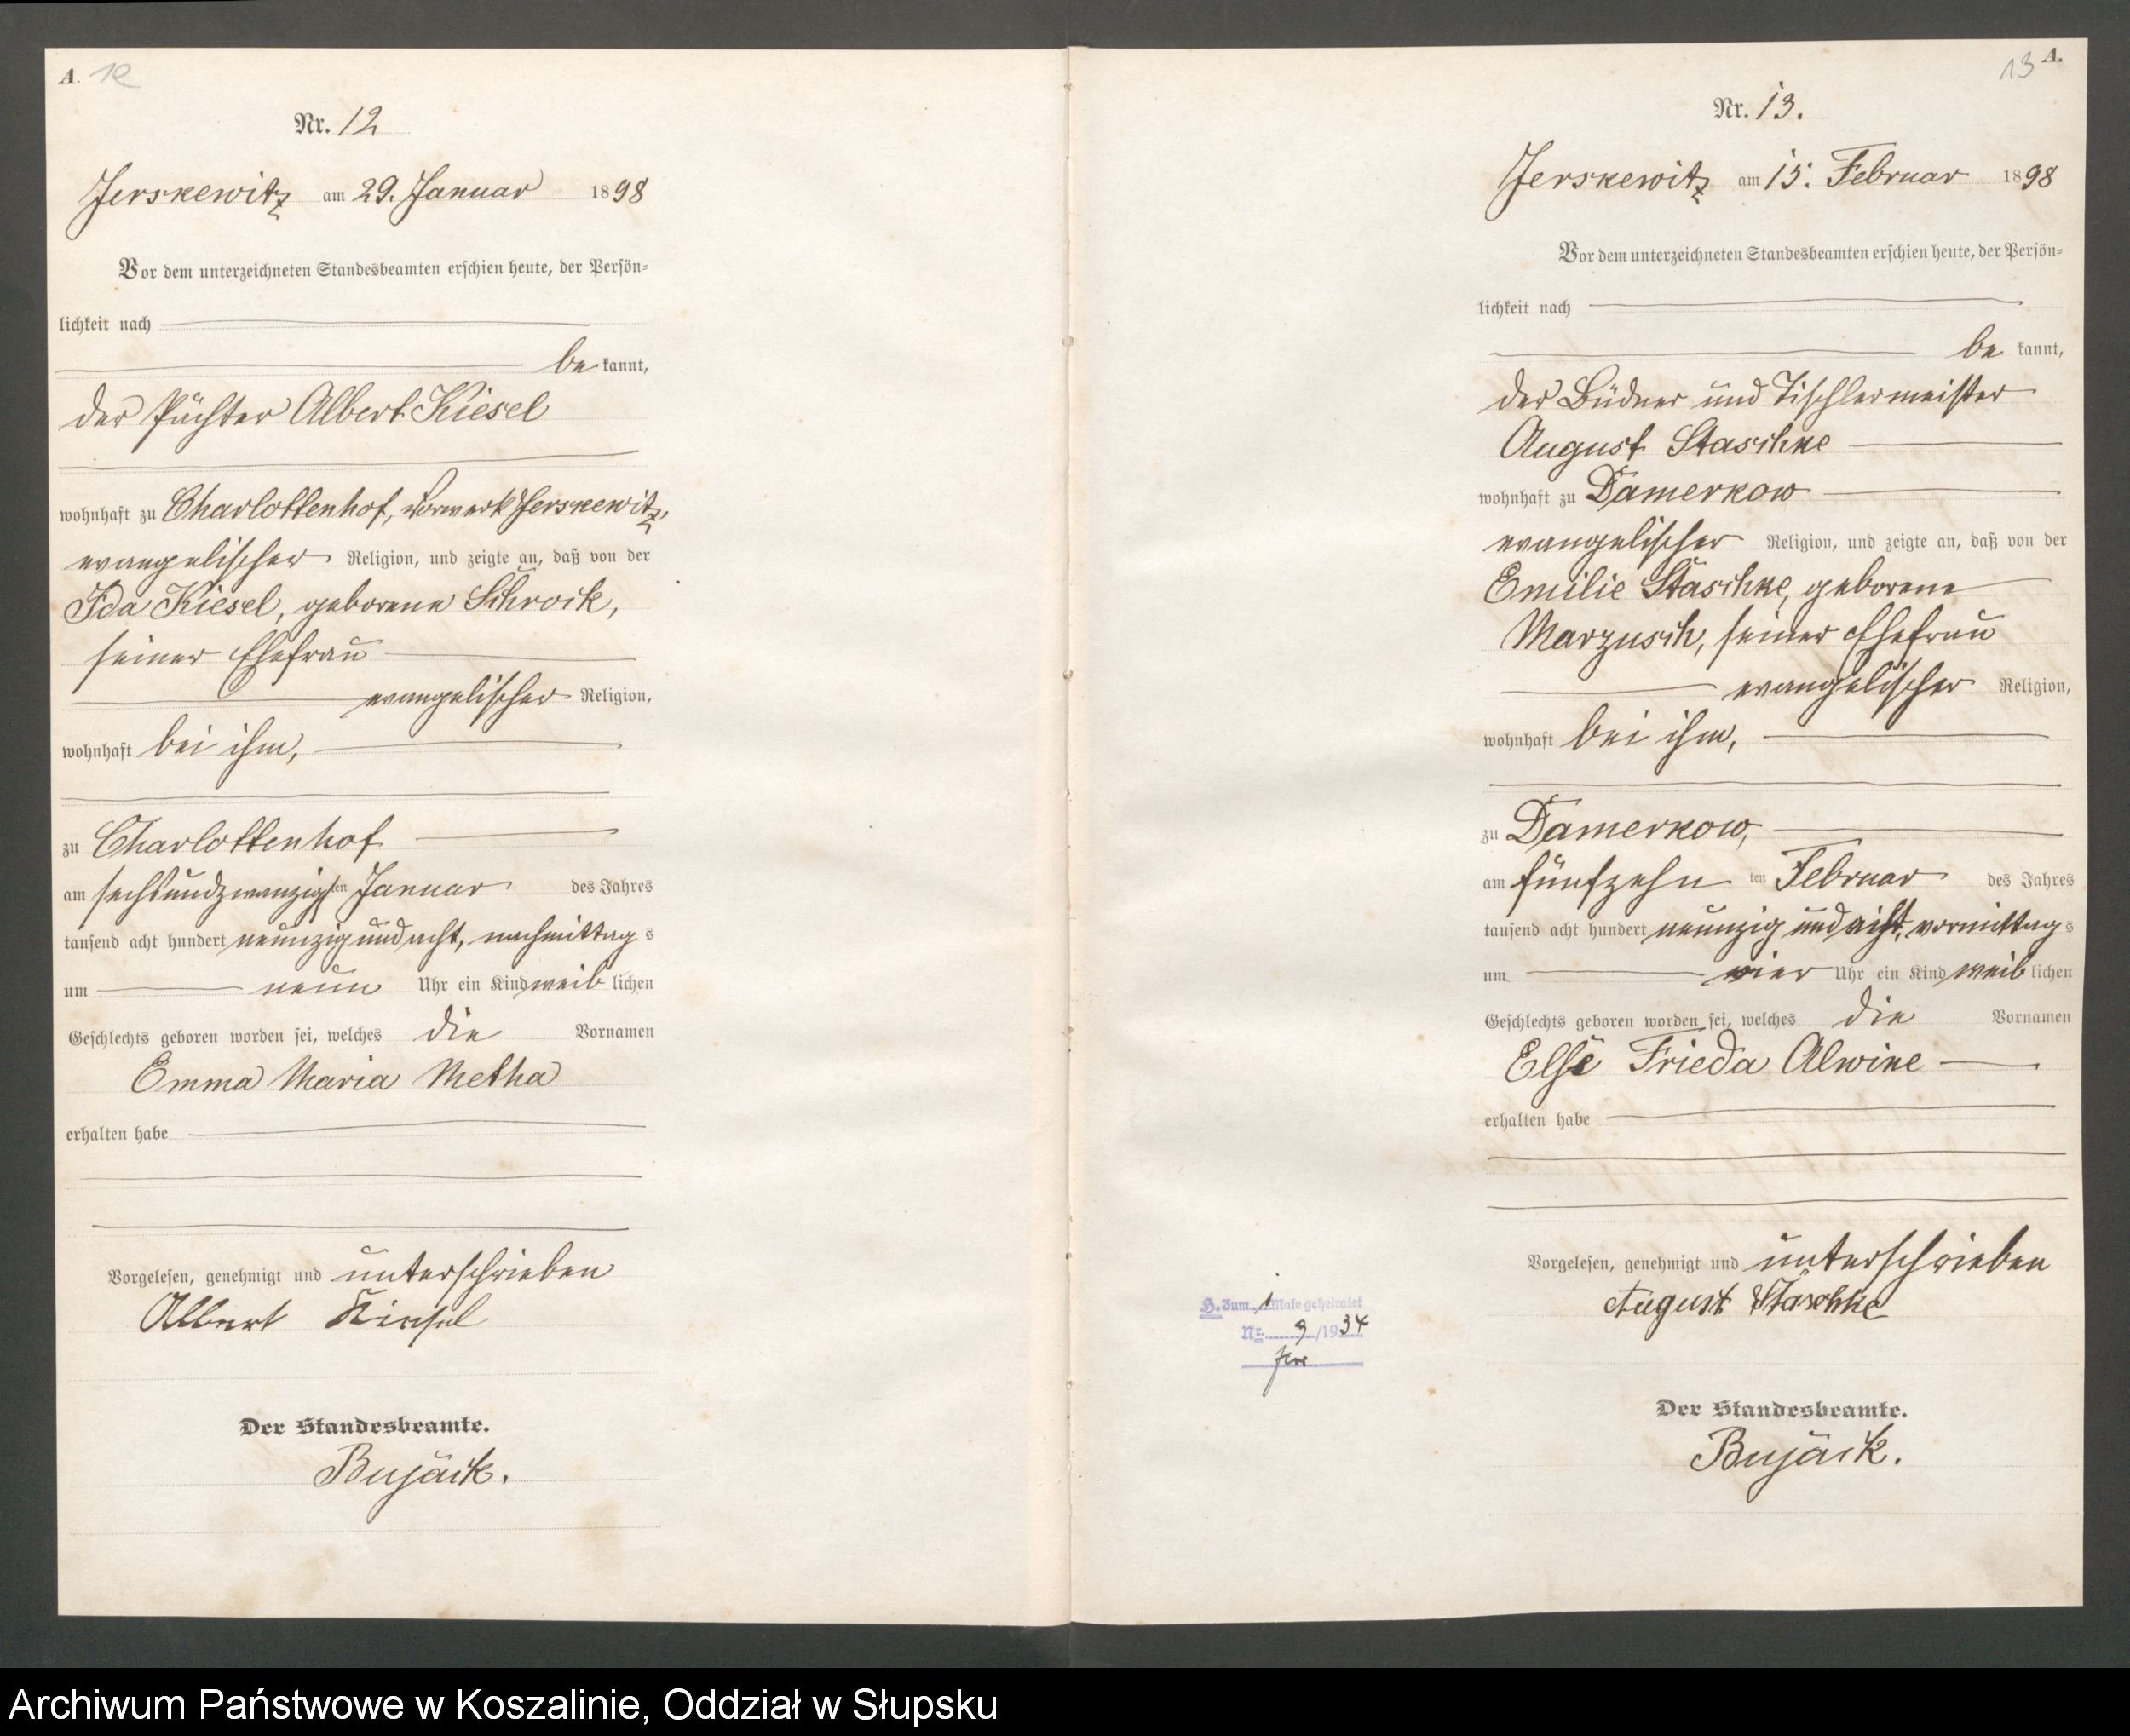 A. 12
Nr. 12
Jerskewitz am 29. Januar 1898
Vor dem unterzeichneten Standesbeamten erschien heute, der Persön-
lichkeit nach
be kannt,
der Pächter Albert Kiesel
wohnhaft zu Charlottenhof, Vorwerk Jerskewitz,
evangelischer Religion, und zeigte an, daß von der
Ida Kiesel, geborene Schrock,
seiner Ehefrau
evangelischer Religion,
wohnhaft bei ihm,
zu Charlottenhof
am sechsundzwanzigsten Januar des Jahres
tausend acht hundert neunzig und acht, nachmittags
um neun Uhr ein Kind weiblichen
Geschlechts geboren worden sei, welches die Vornamen
Emma Maria Metha
erhalten habe
Vorgelesen, genehmigt und unterschrieben
Albert Kiesel
Der Standesbeamte.
Bujäck.
13 A.
Nr. 13.
Jerskewitz am 15. Februar 1898
Vor dem unterzeichneten Standesbeamten erschien heute, der Persön-
lichkeit nach
be kannt,
der Büdner und Tischlermeister
August Staschke
wohnhaft zu Damerkow
evangelischer Religion, und zeigte an, daß von der
Emilie Staschke, geborene
Marzusch, seiner Ehefrau
evangelischer Religion,
wohnhaft bei ihm,
zu Damerkow,
am fünfzehn ten Februar des Jahres
tausend acht hundert neunzig und acht, vormittags
um vier Uhr ein Kind weiblichen
Geschlechts geboren worden sei, welches die Vornamen
Else Frieda Alwine
erhalten habe
Vorgelesen, genehmigt und unterschrieben
August Staschke
Der Standesbeamte.
Bujäck.
H. Zum 1 Male geheiratet
Nr. 9/1934
Archiwum Państwowe w Koszalinie, Oddział w Słupsku